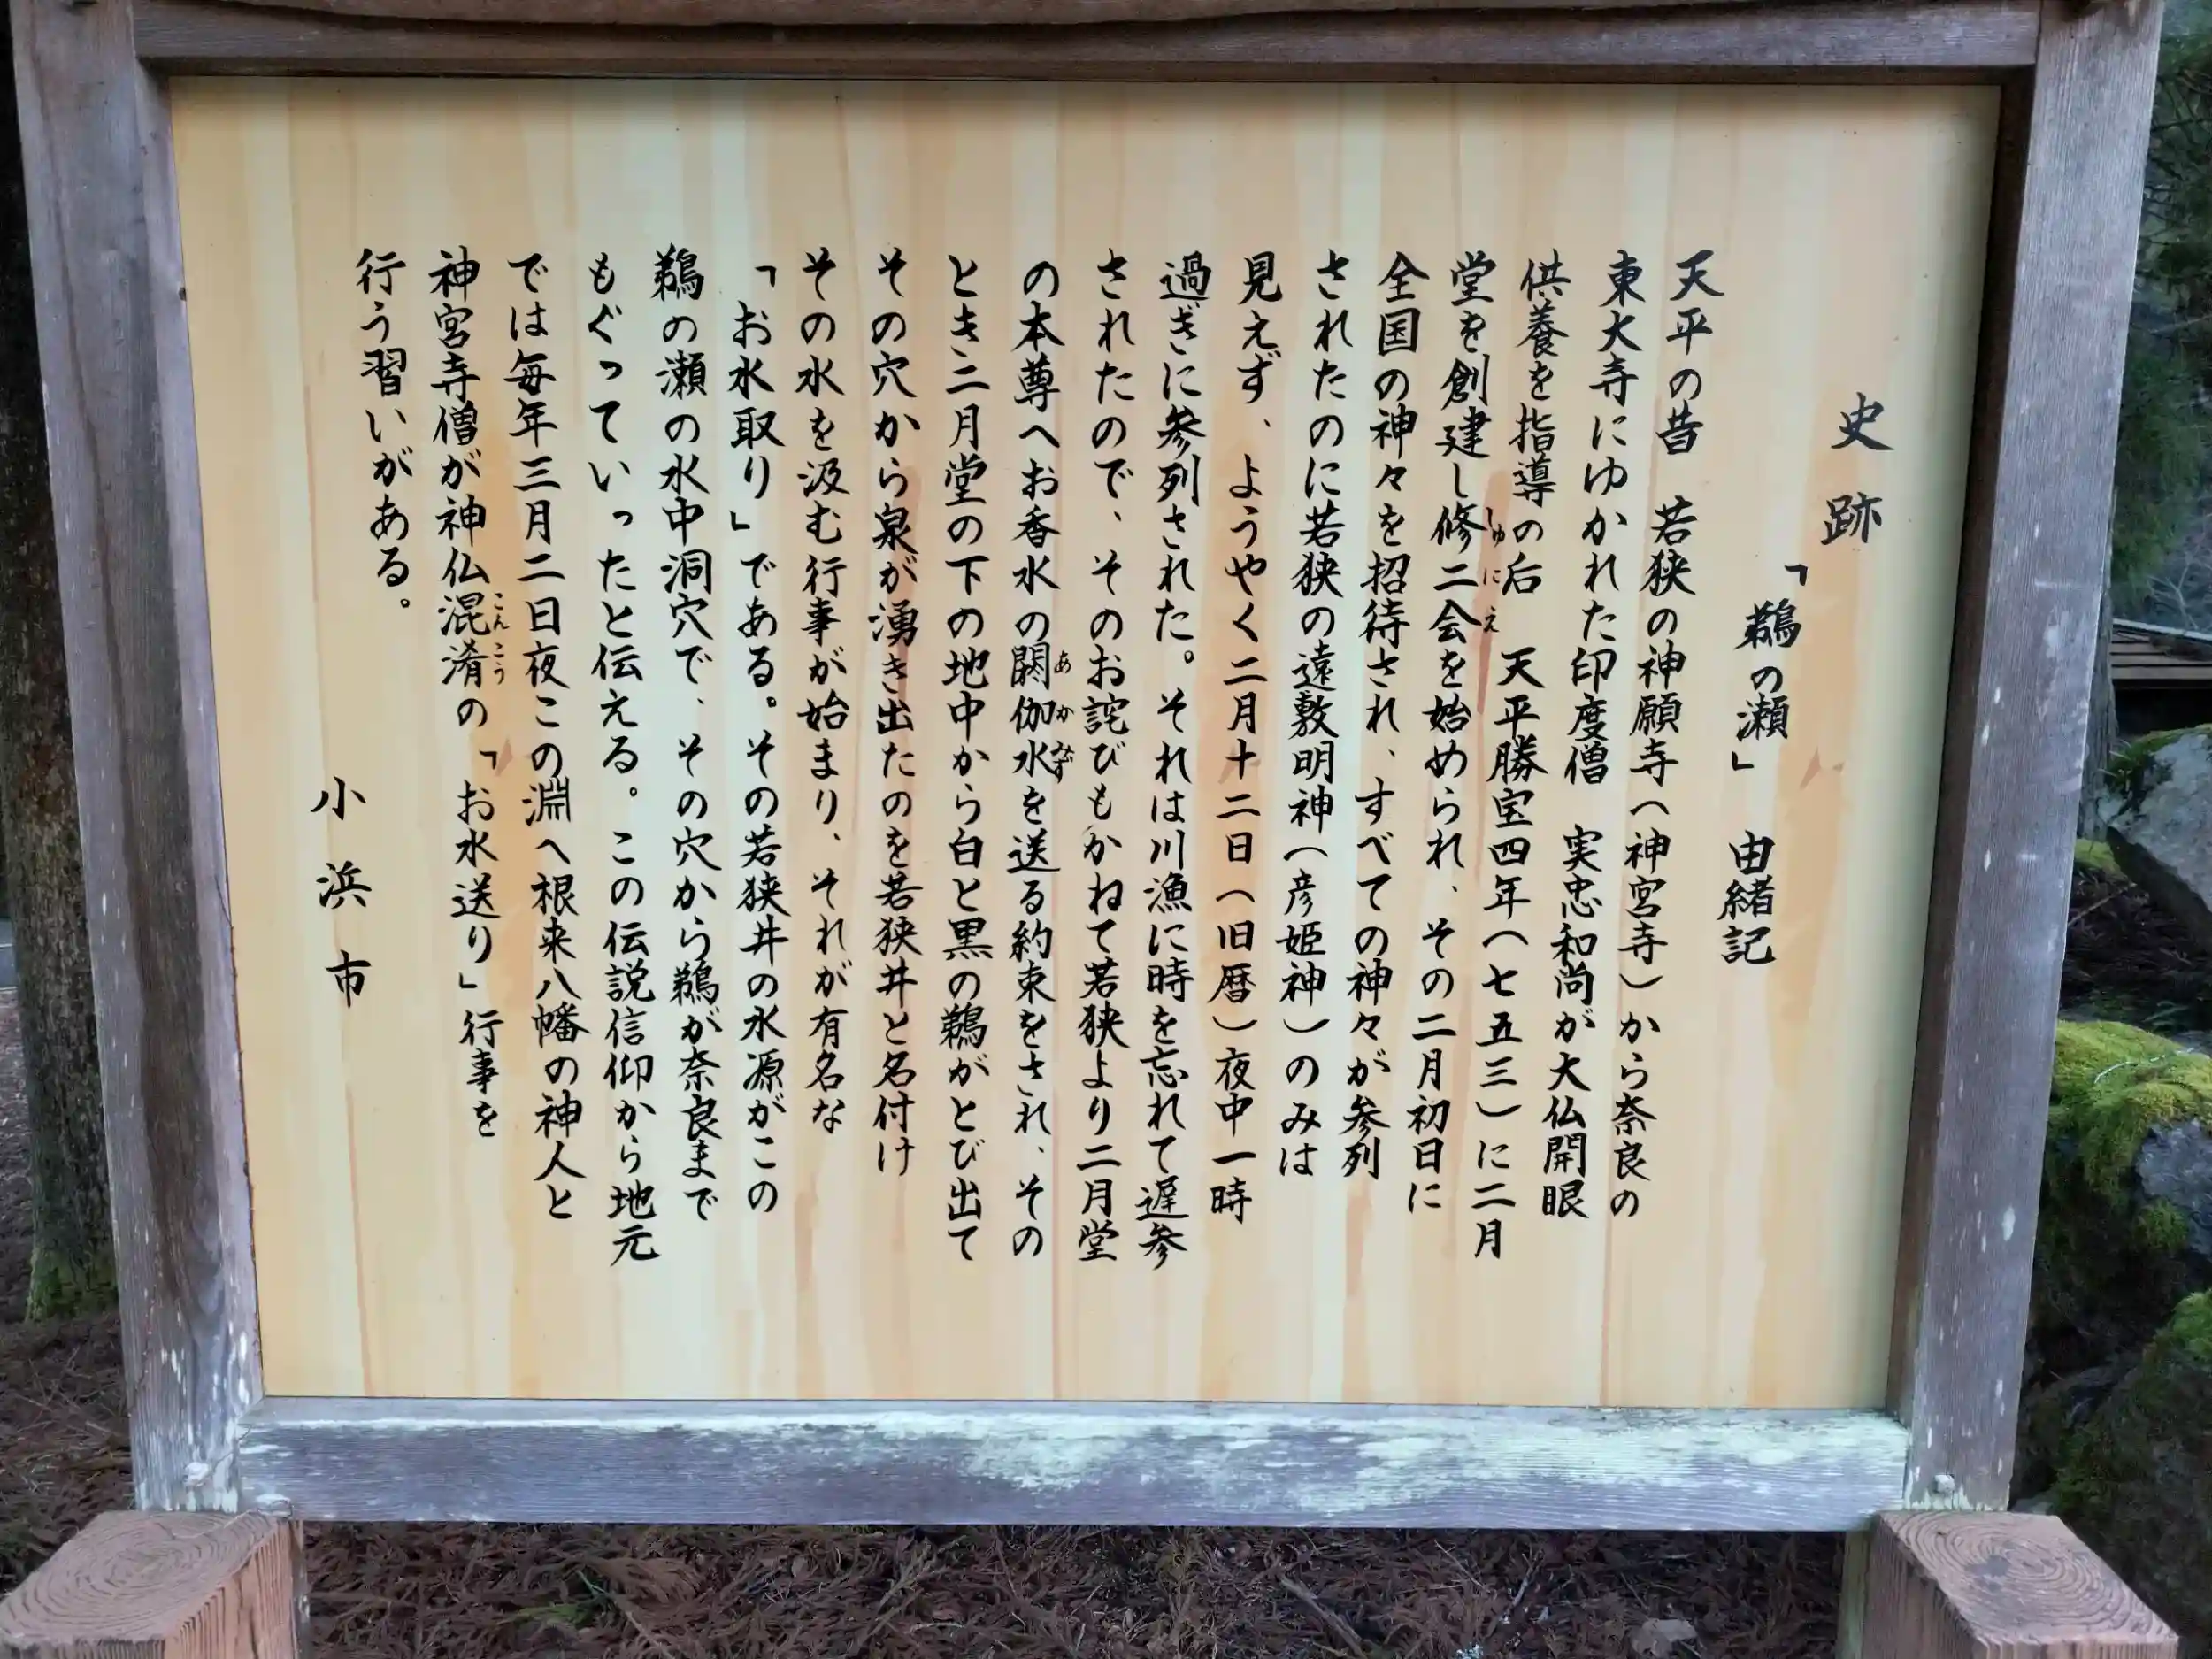 史跡
「鵜の瀬」 由緒記
天平の昔 若狭の神願寺(神宮寺)から奈良の
東大寺にゆかれた印度僧 実忠和尚が大仏開眼
供養を指導の后 天平勝宝四年(七五三)に二月
堂を創建し修二会を始められ、その二月初日に
しゅにえ
全国の神々を招待され、すべての神々が参列
されたのに若狭の遠敷明神(彦姫神)のみは
見えず、ようやく二月十二日(旧暦)夜中一時
過ぎに参列された。それは川漁に時を忘れて遅参
されたので、そのお詫びもかねて若狭より二月堂
の本尊へお香水の閼伽水を送る約束をされ、その
あかみず
とき二月堂の下の地中から白と黒の鵜がとび出て
その穴から泉が湧き出たのを若狭井と名付け
その水を汲む行事が始まり、それが有名な
「お水取り」である。その若狭井の水源がこの
鵜の瀬の水中洞穴で、その穴から鵜が奈良まで
もぐっていったと伝える。この伝説信仰から地元
では毎年三月二日夜この淵へ根来八幡の神人と
神宮寺僧が神仏混淆の「お水送り」行事を
こんこう
行う習いがある。
小浜市